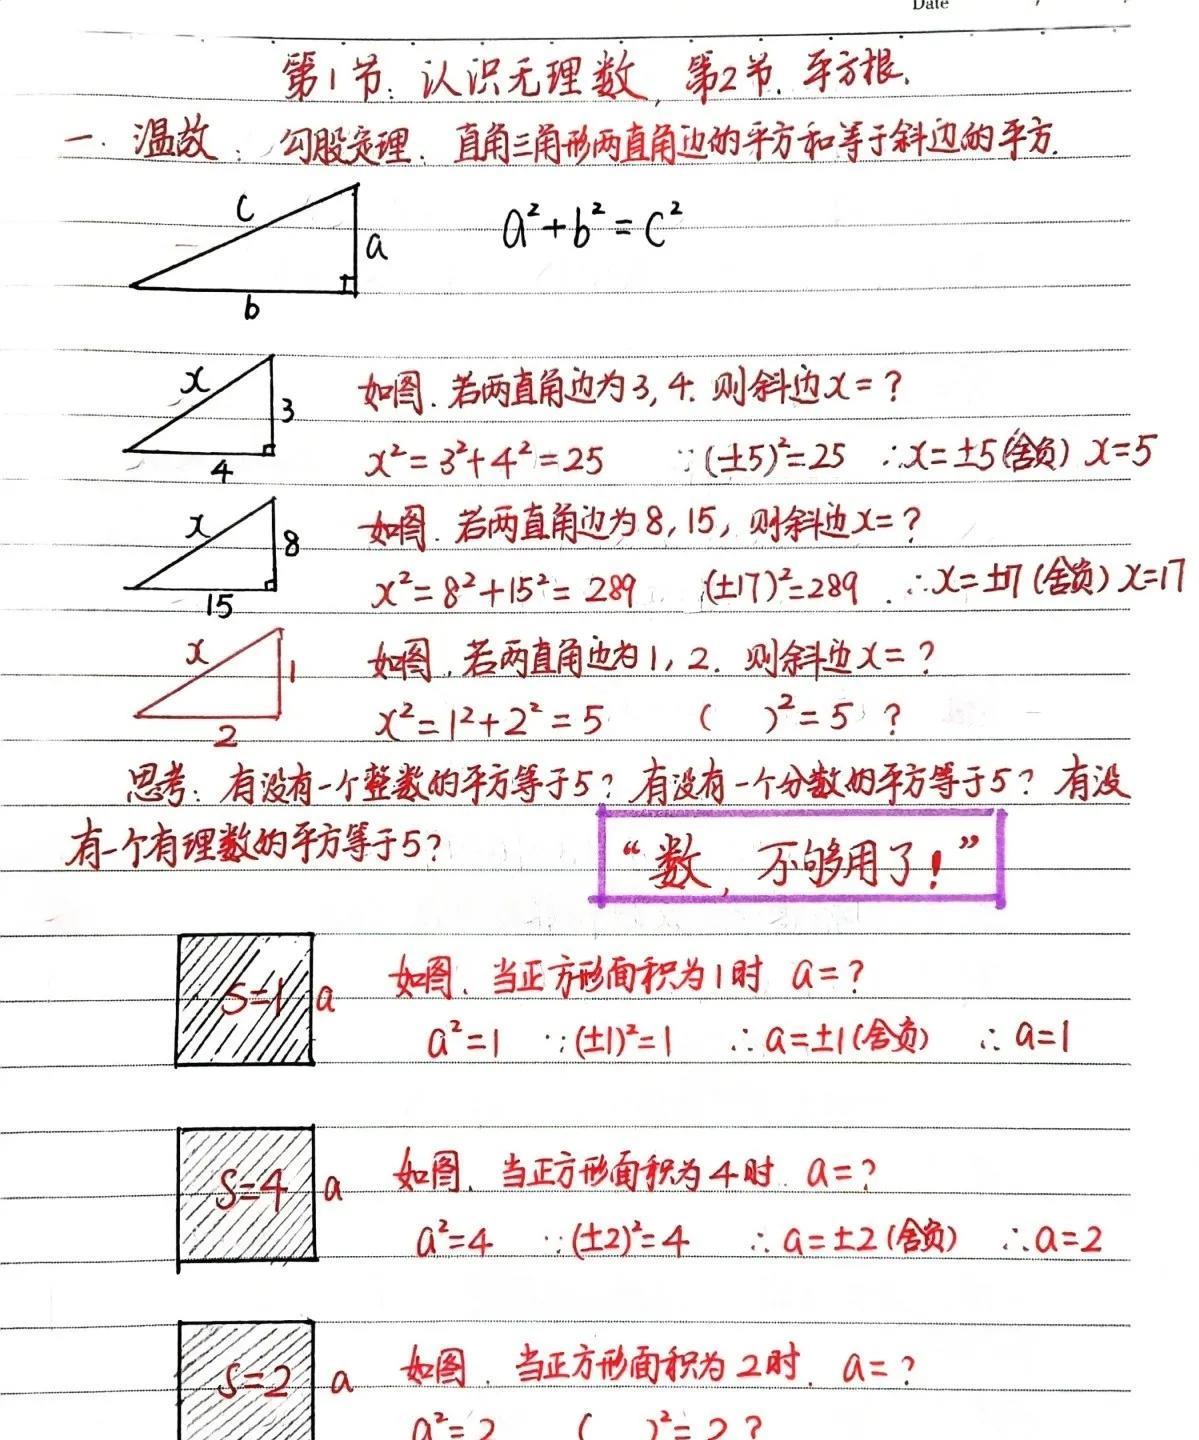 Date
第1节:认识无理数,第2节.平方根.
一.温故:勾股定理.直角三角形两直角边的平方和等于斜边的平方.
c
a
b
a²+b²=c²
x
3
4
如图.若两直角边为3,4.则斜边x=?
x²=3²+4²=25 ∵(±5)²=25 ∴x=±5(舍负) x=5
x
8
15
如图.若两直角边为8,15,则斜边x=?
x²=8²+15²=289 (±17)²=289 ∴x=±17(舍负)x=17
x
1
2
如图,若两直角边为1,2.则斜边x=?
x²=1²+2²=5 ( )²=5 ?
思考:有没有一个整数的平方等于5?有没有一个分数的平方等于5?有没
有一个有理数的平方等于5?
“数,不够用了!”
S=1 a
如图.当正方形面积为1时 a=?
a²=1 ∵(±1)²=1 ∴a=±1(舍负) ∴a=1
S=4 a
如图.当正方形面积为4时.a=?
a²=4 ∵(±2)²=4 ∴a=±2(舍负) ∴a=2
S=2 a
如图.当正方形面积为2时.a=?
a²=2 ( )²=2?